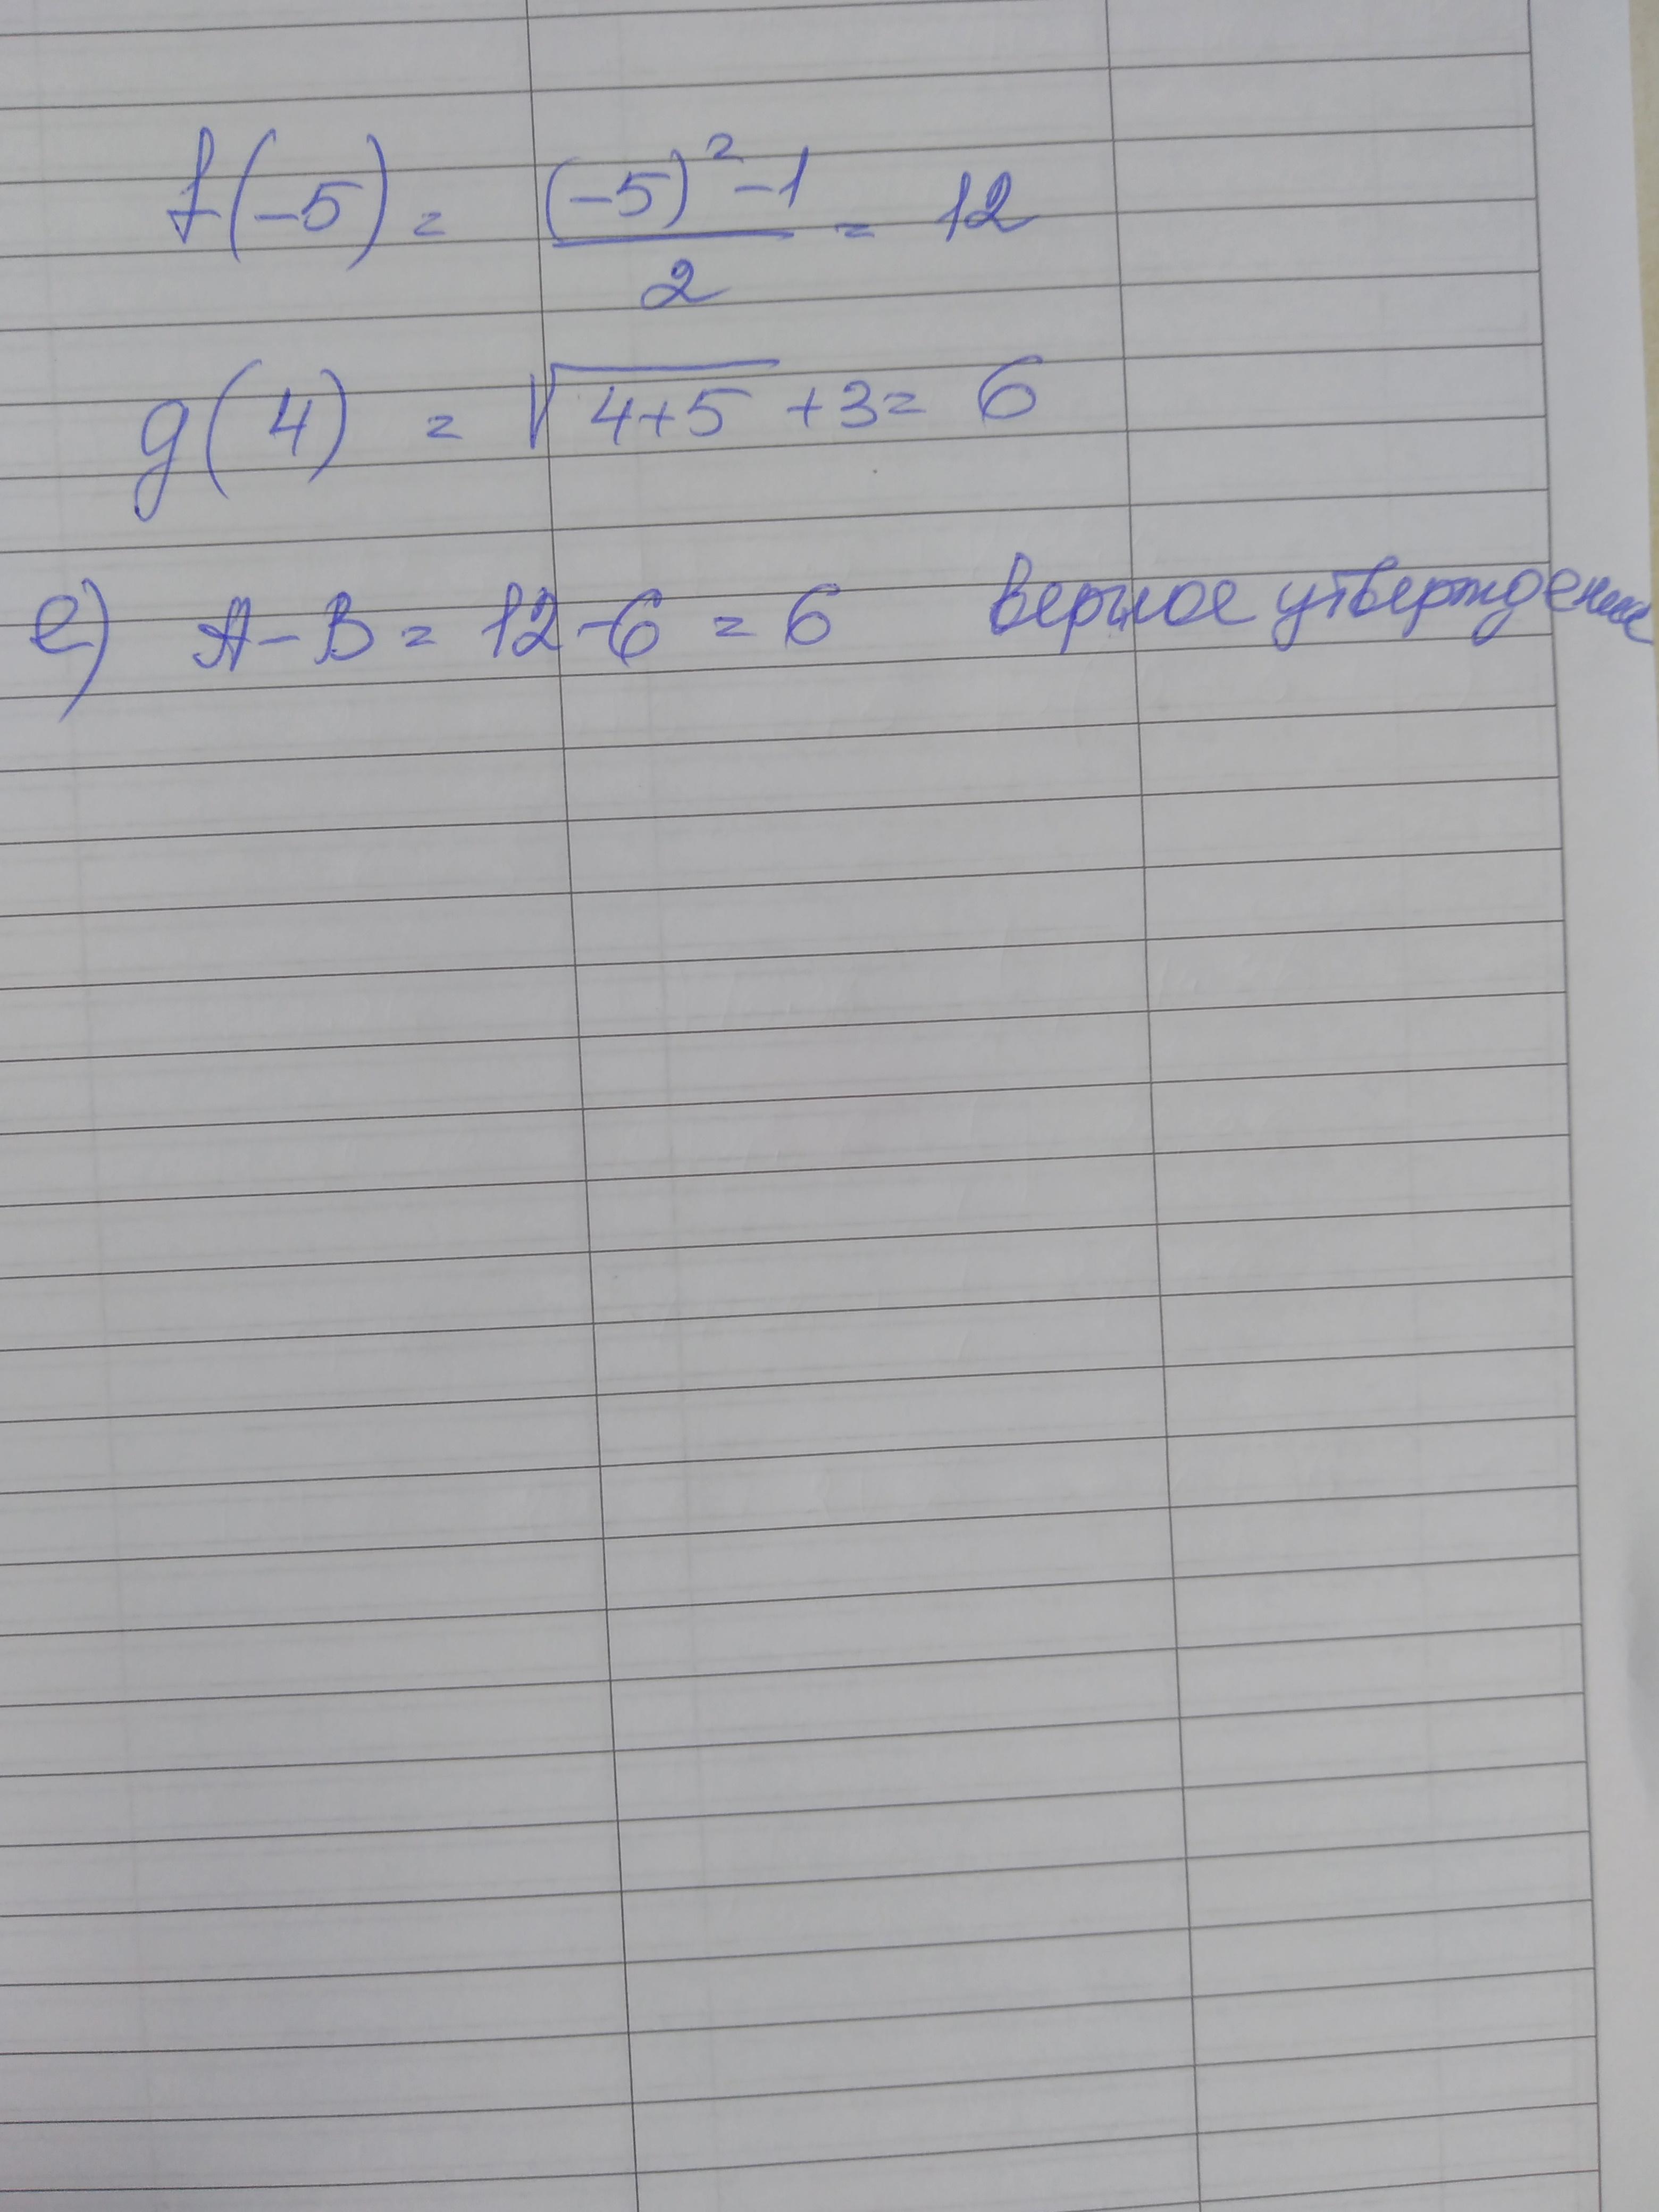 f(-5) = ((-5)² - 1) / 2 = 12
g(4) = √(4+5) + 3 = 6
е) A - B = 12 - 6 = 6 верное утверждение